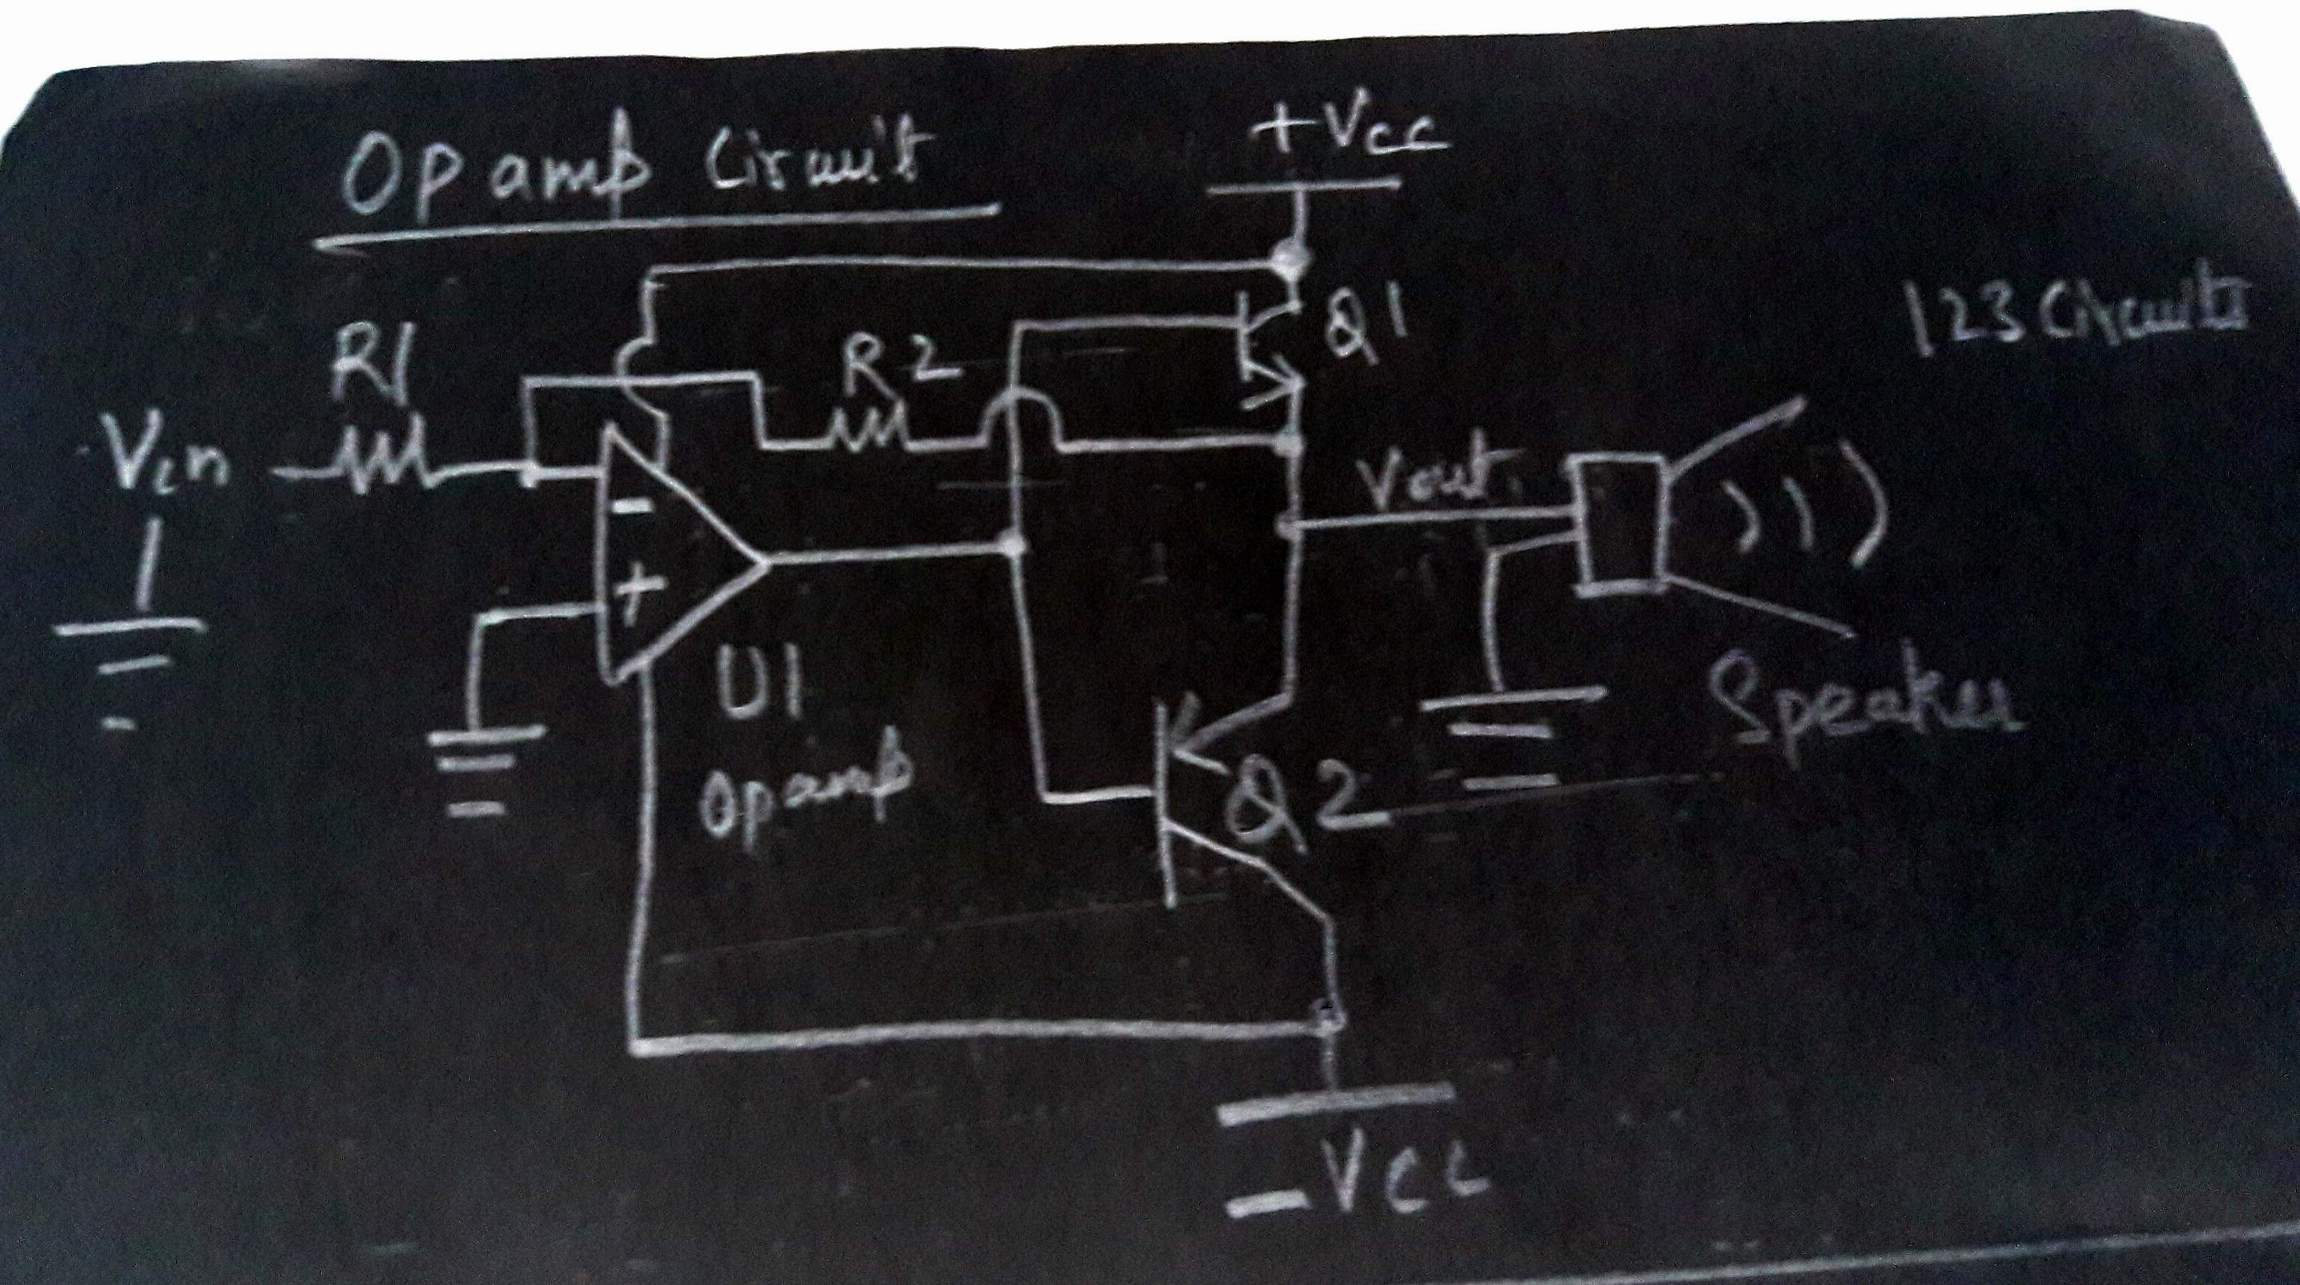 Op amp Circuit
+Vcc
123 Circuits
R1
R2
Q1
Vin
Vout
-
+
U1
Op amp
Q2
Speaker
-Vcc